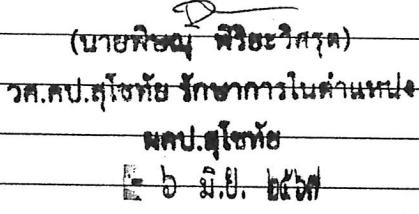 (นายพิษณุ พิริยะวิศรุต)
วศ.คป.สุโขทัย รักษาการในตำแหน่ง
ผคป.สุโขทัย
- ๖ มิ.ย. ๒๕๖๗